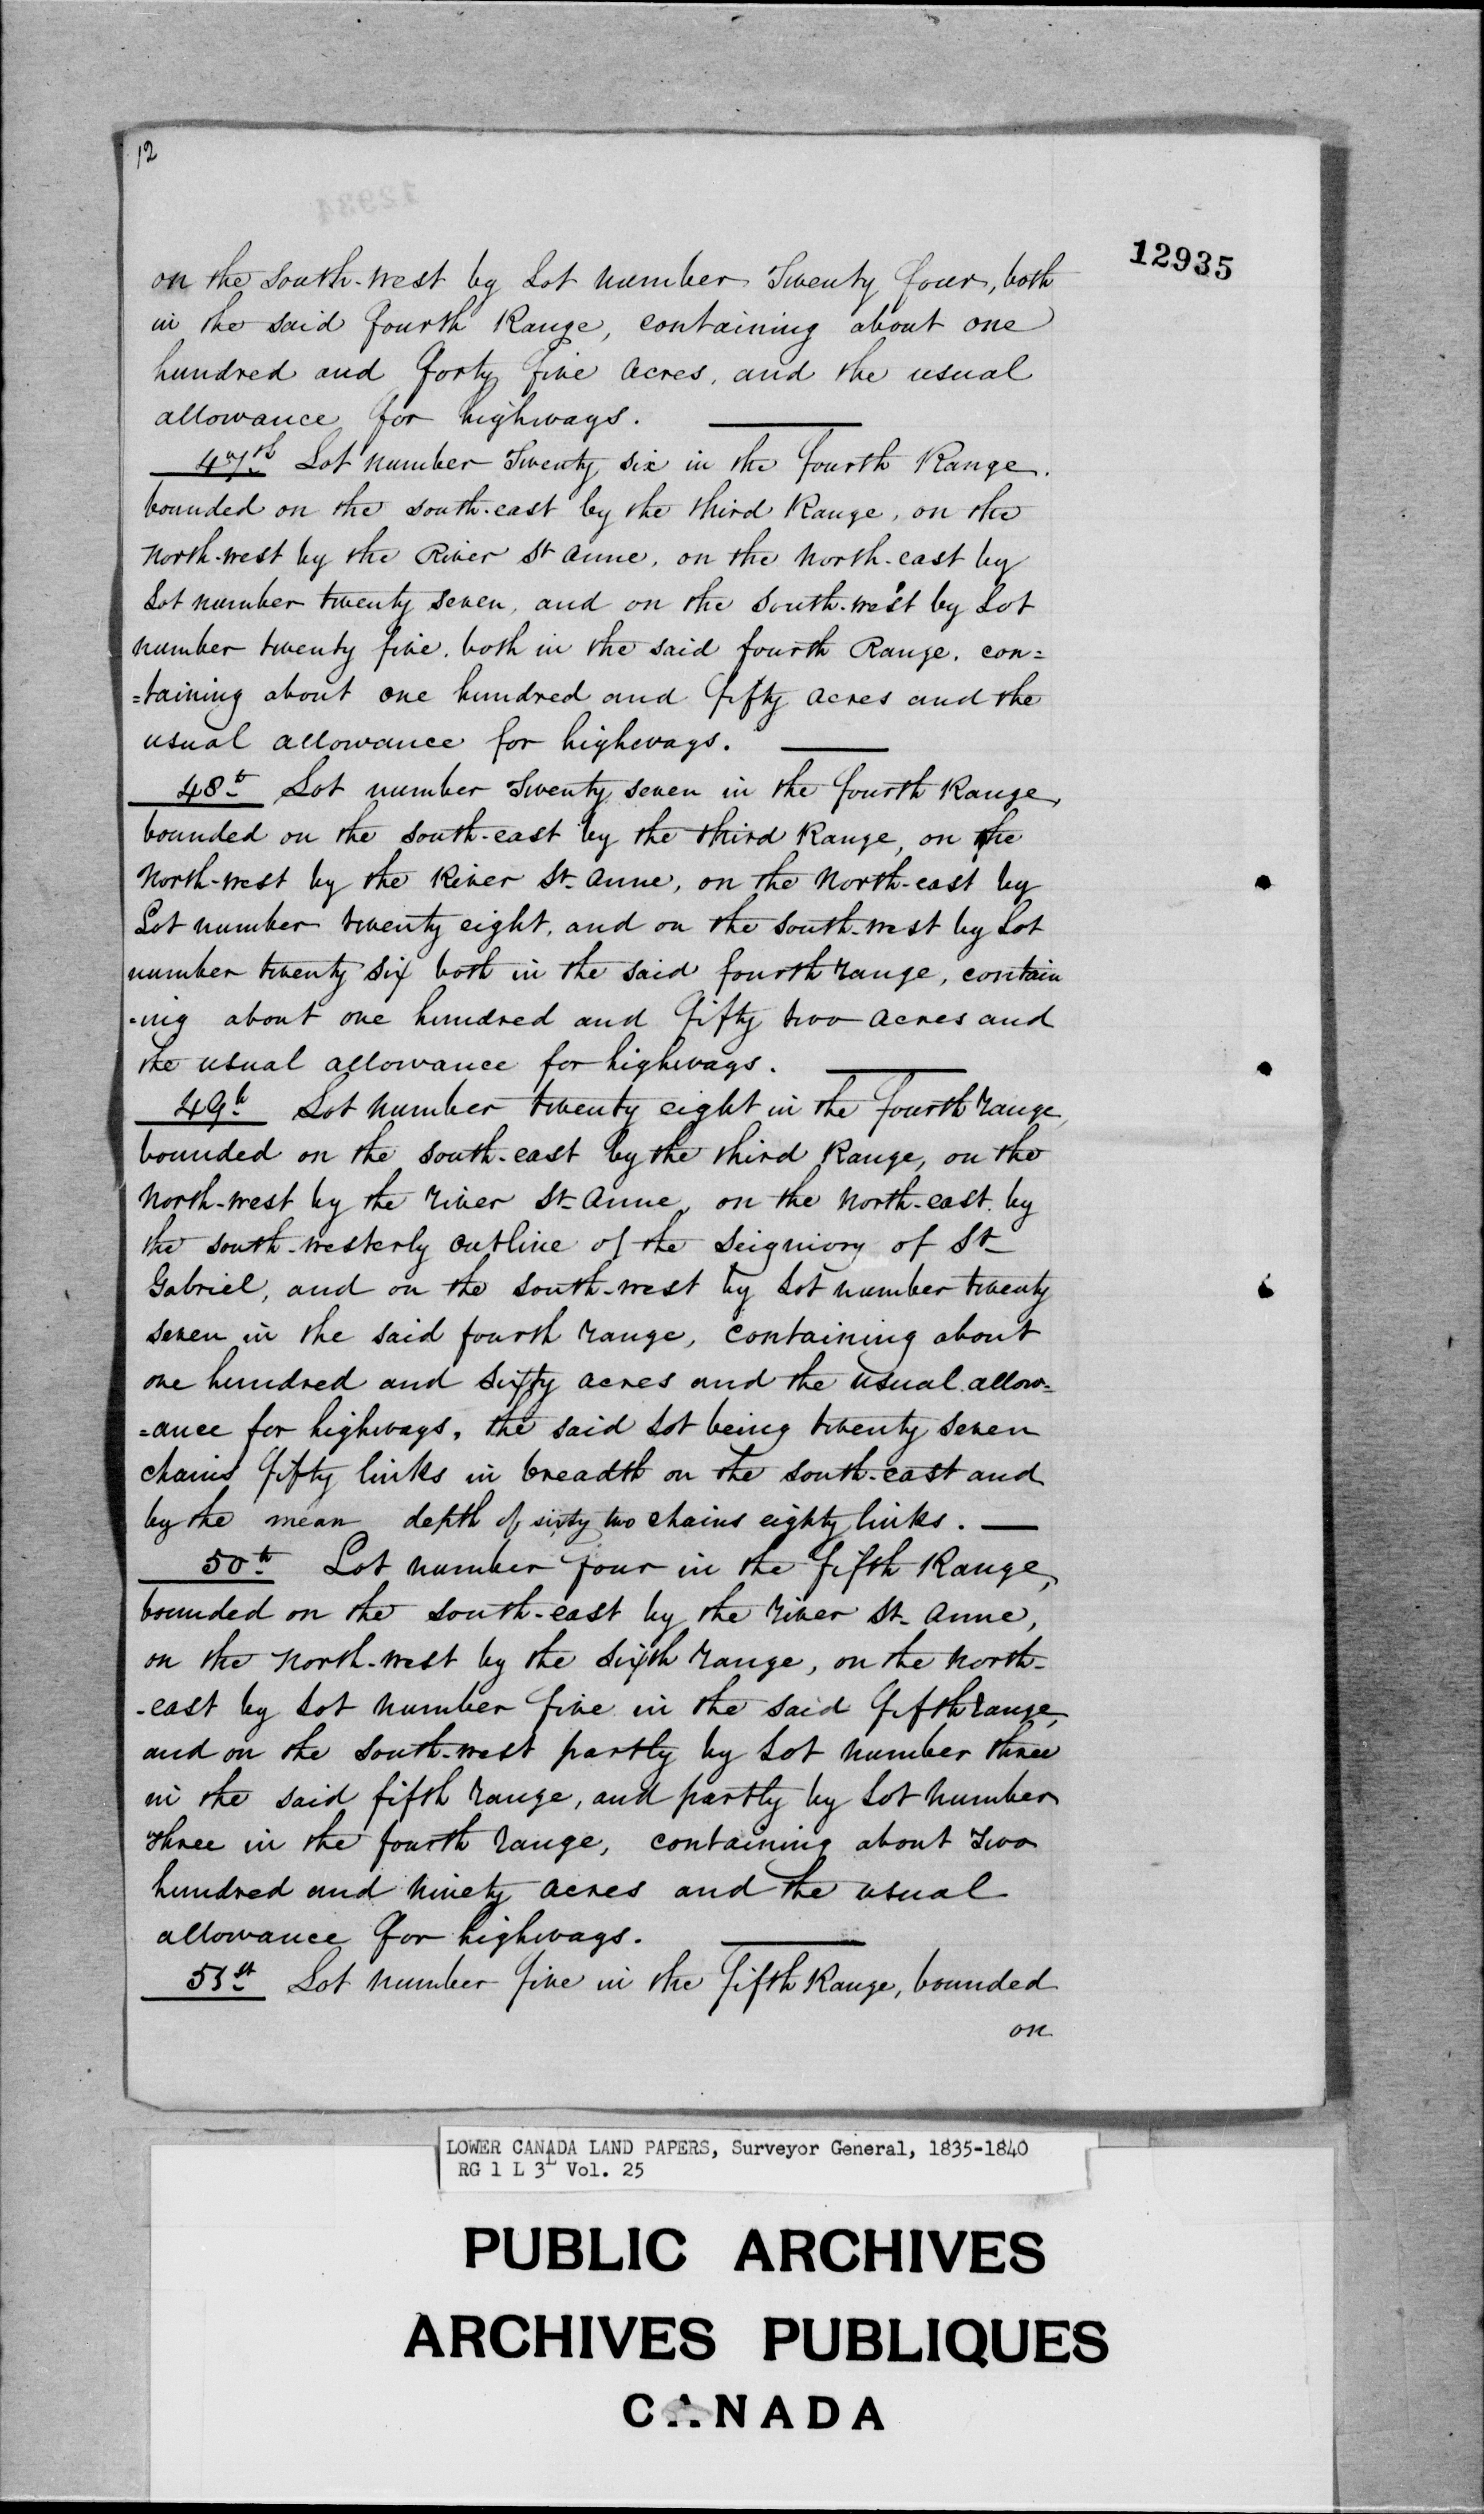 12
12935
on the south-west by Lot number Twenty four, both
in the said fourth Range, containing about one
hundred and forty five acres, and the usual
allowance for highways.
47th Lot number Twenty six in the fourth Range.
bounded on the south-east by the third Range, on the
North-west by the River St Anne, on the North-east by
Lot number twenty seven, and on the South-west by Lot
number twenty five. both in the said fourth Range. con=
=taining about one hundred and fifty acres and the
usual allowance for highways.
48th Lot number Twenty seven in the fourth Range,
bounded on the south-east by the third Range, on the
North-west by the River St- Anne, on the North-east by
Lot number twenty eight, and on the south-west by Lot
number twenty six both in the said fourth range, contain
-ing about one hundred and fifty two acres and
the usual allowance for highways.
49th Lot number twenty eight in the fourth range,
bounded on the south-east by the third Range, on the
North-west by the river St- Anne, on the North-east by
the south-westerly outline of the Seigniory of St-
Gabriel, and on the south-west by Lot number twenty
seven in the said fourth range, containing about
one hundred and sixty acres and the usual allow=
=ance for highways, the said Lot being twenty seven
chains fifty links in breadth on the south-east and
by the mean depth of sixty two chains eighty links.
50th Lot number four in the fifth Range,
bounded on the south-east by the river St- Anne,
on the North-west by the sixth range, on the North-
-east by Lot number five in the said fifth range,
and on the south-west partly by Lot number three
in the said fifth range, and partly by Lot number
three in the fourth range, containing about Two
hundred and ninety acres and the usual
allowance for highways.
51st Lot number five in the fifth Range, bounded
on
LOWER CANADA LAND PAPERS, Surveyor General, 1835-1840
RG 1 L 3L Vol. 25
PUBLIC ARCHIVES
ARCHIVES PUBLIQUES
CANADA